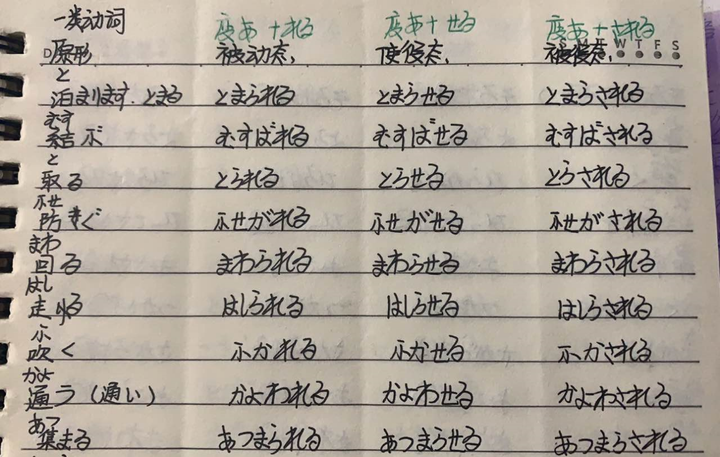 一类动词 度あ+れる 度あ+せる 度あ+される
原形 被动态, 使役态, 被役态,
D S M T W T F S
と
泊まります.とまる とまられる とまらせる とまらされる
むす
結ぶ むすばれる むすばせる むすばされる
と
取る とられる とらせる とらされる
ふせ
防ぐ ふせがれる ふせがせる ふせがされる
まわ
回る まわられる まわらせる まわらされる
はし
走る はしられる はしらせる はしらされる
ふ
吹く ふかれる ふかせる ふかされる
かよ
通う(通い) かよわれる かよわせる かよわされる
あつ
集まる あつまられる あつまらせる あつまらされる